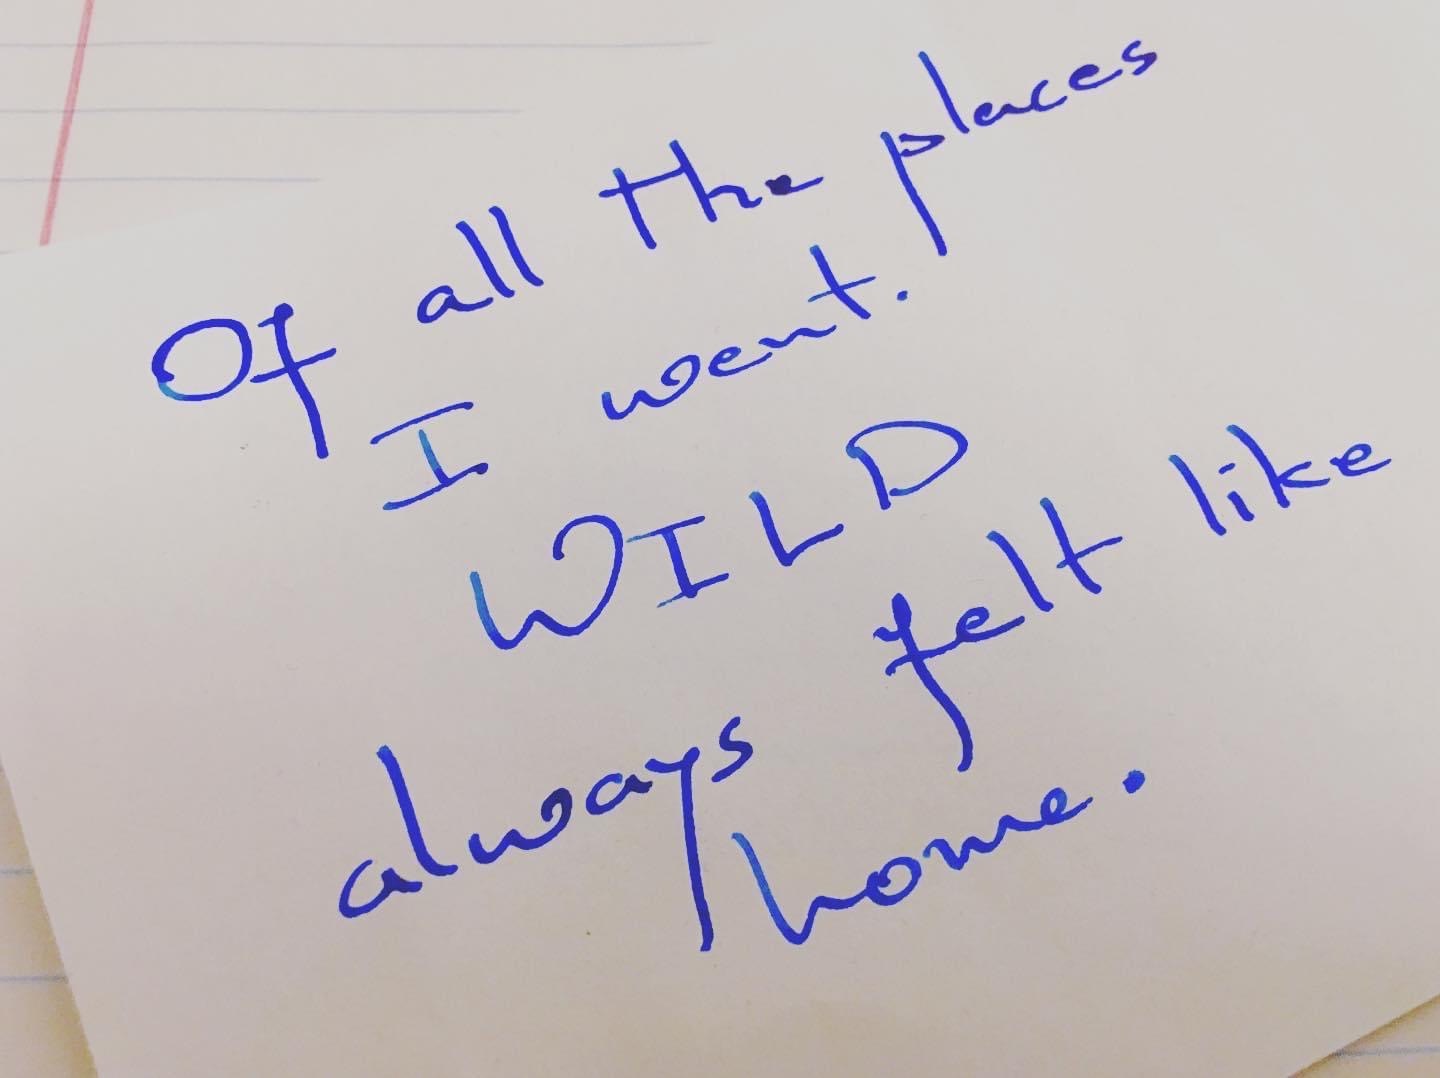 Of all the places
I went.
WILD
always felt like
home.